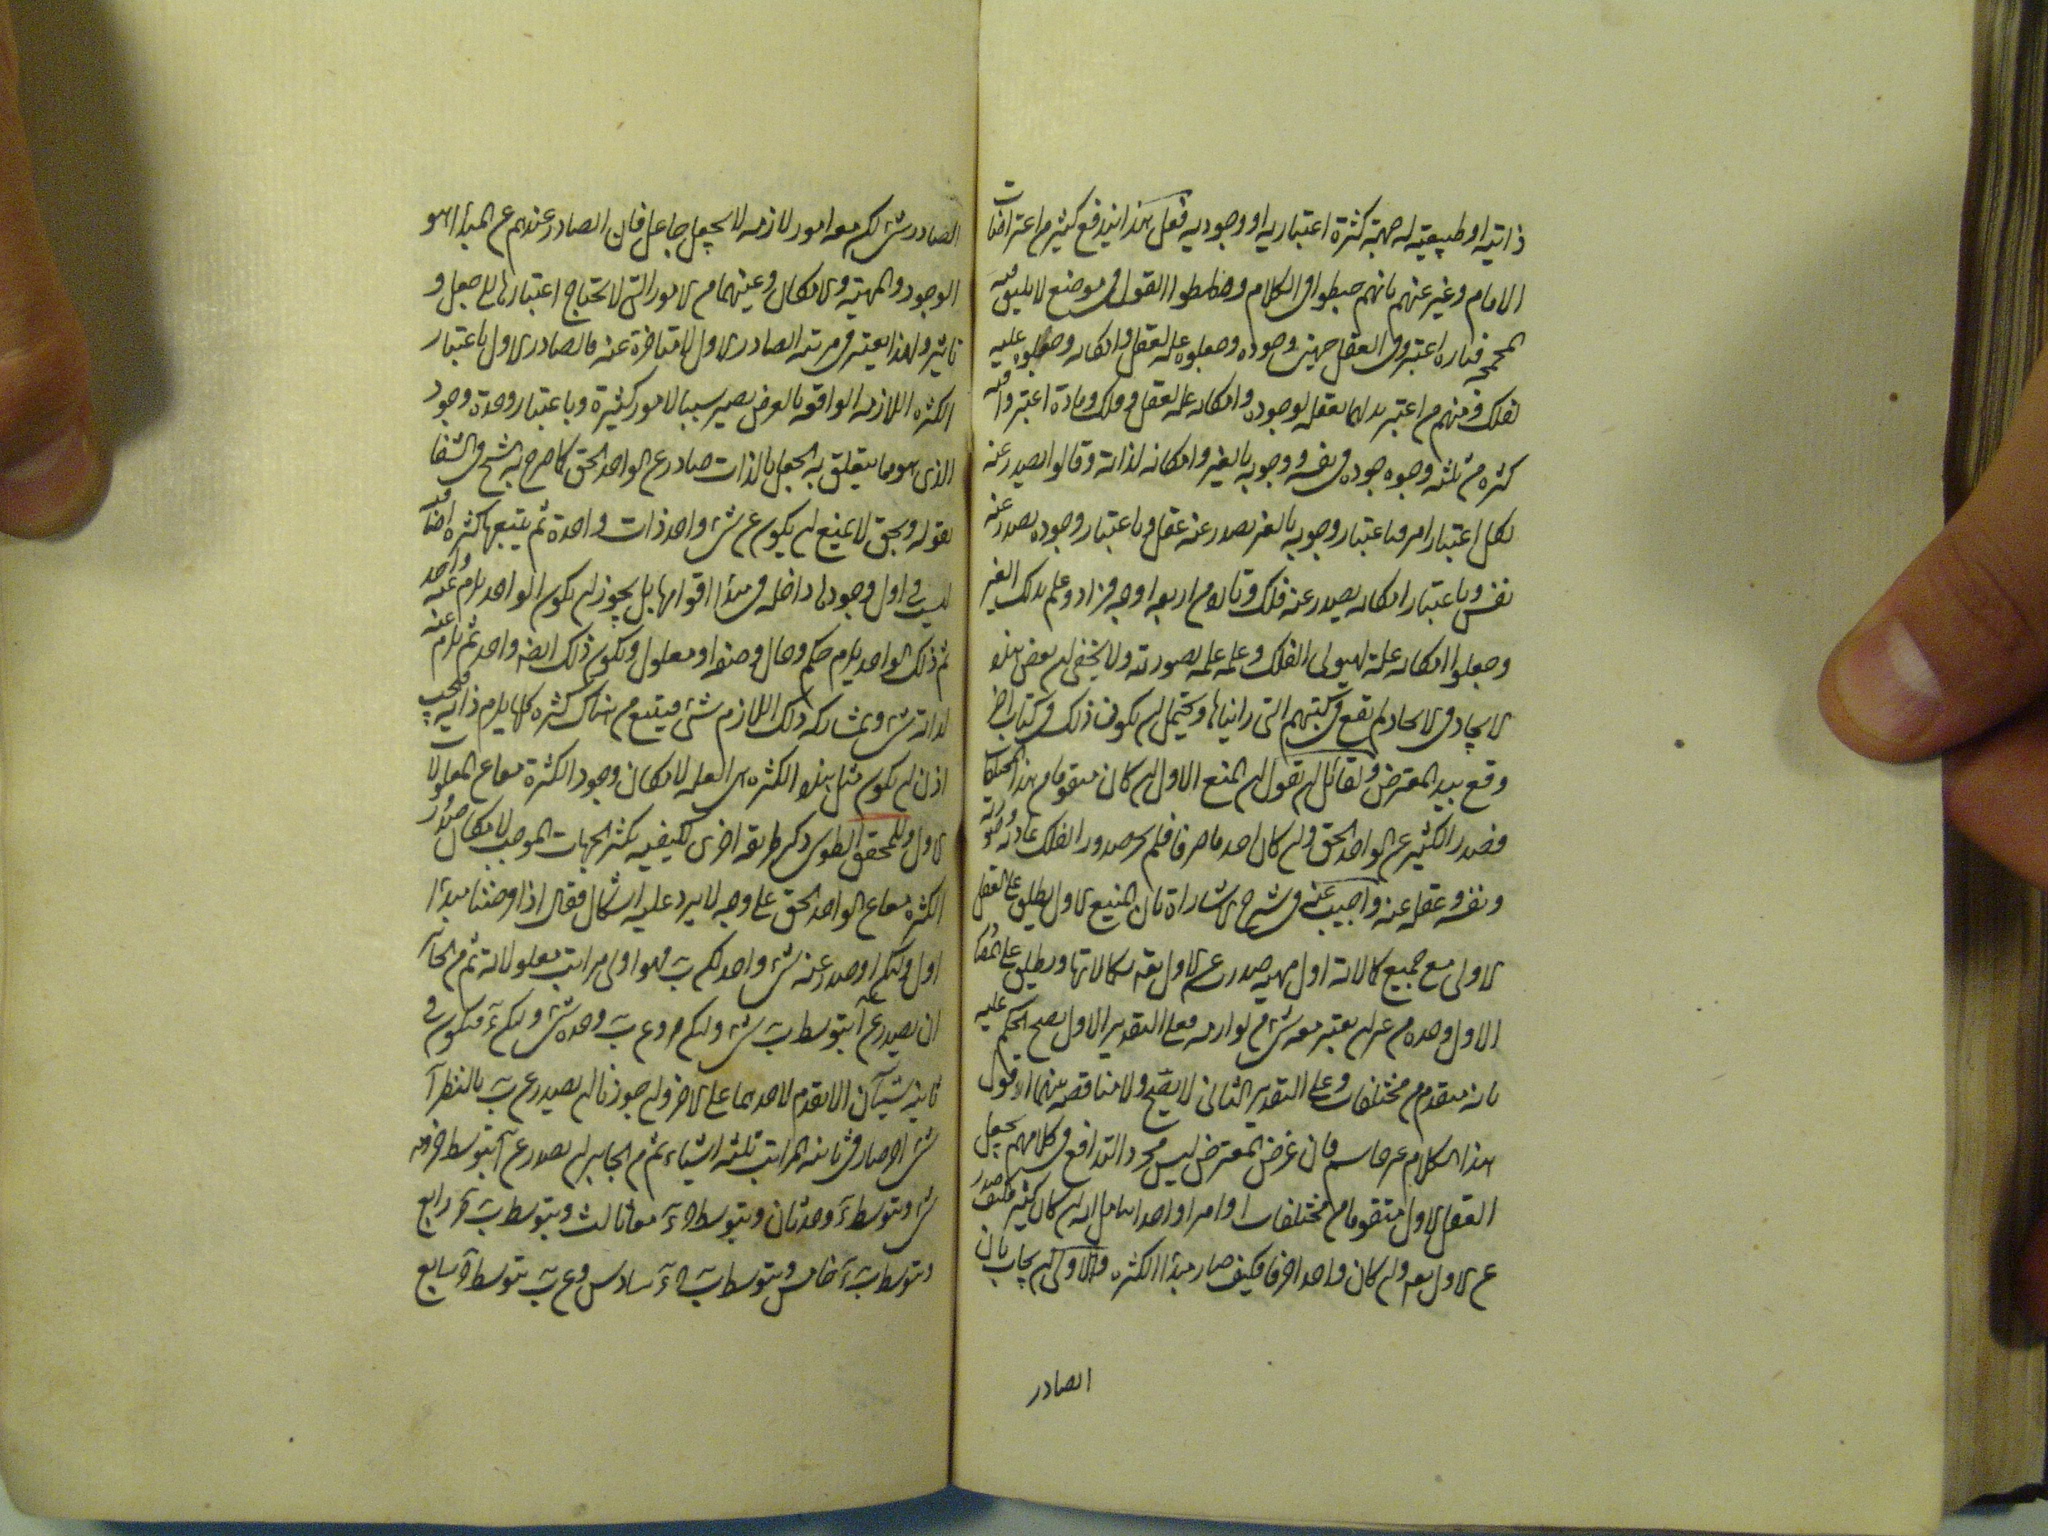 ذاتيه او طبيعته له جهة كثرة اعتباريه او وجوديه فعلى هذا يندفع كثير من اعتراضات
الامام وغيره عنهم بانهم خبطوا فى الكلام وخلطوا القول فى موضع لا يليق به
فتارة اعتبروا فى العقل جهتين وجوده وجعلوه علة العقل وامكانه وجعلوه علة
لفلك ومنهم من اعتبر بدلهما تعقله لوجوده وامكانه علة لعقل وفلك وتارة اعتبروا فيه
كثرة من ثلثه وجوه وجوده فى نفسه ووجوبه بالغير وامكانه لذاته وقالوا يصدر عنه
بكل اعتبار امر فباعتبار وجوبه بالغير يصدر عنه عقل وباعتبار وجوده يصدر عنه
نفس وباعتبار امكانه يصدر عنه فلك وتارة من اربعه اوجه فزادوا علمه بذلك الغير
وجعلوا امكانه علة لهيولى الفلك وعلمه علة لصورته ولا يخفى ان بعض هذه
لم يقع فى كتبهم التى رايناها ويحتمل ان يكون ذلك فى كتاب اخر
وقع بيد المعترض ولقائل ان يقول ان المنع الاول ان كان متقوما من هذه المختلفات
فصدر الكثير عن الواحد الحق وان كان احد ما صرفا فلم يجز صدور الفلك مادته وصورته
ونفسه وعقل عنه واجيب عنه فى شرح الاشارات بان الاول يطلق على العقل
الاول مع جميع كمالاته اول مهية صدر عن الاول بعد كمالاتها ويطلق على
الاول وحده من غير ان يعتبر معه شئ من لوازمه فعلى التقدير الاول يصح الحكم عليه
بانه متقوم من مختلفات وعلى التقدير الثانى لا يصح ولا مناقضه بينهما اقول
هذا الكلام غير حاسم فان غرض المعترض ليس مجرد التدافع فى كلامهم بجعل
العقل الاول متقوما من مختلفات او امرا واحدا بل انه ان كان كثير فكيف صدر
عن الاول تعه وان كان واحدا صرفا فكيف صار مبدأ الكثره والاولى ان يجاب بان
الصادر
الصادر شئ لكن معه امور لازمه لا بجعل جاعل فان الصادر عندهم عن المبدأ هو
الوجود والمهية والامكان وغيرهما من الامور التى لا تحتاج اعتبارها الى جعل و
تاثير ولهذا يعتبر فى مرتبة الصادر الاول لا متاخرة عنه فالصادر الاول باعتبار
الكثره اللازمه الواقعه بالعرض يصير سببا لامور كثيرة وباعتبار وحدة وجود
الذى هو ما يتعلق به الجعل بالذات صادر عن الواحد الحق كما صرح به الشيخ فى الشفا
بقوله ونحن لا نمنع ان يكون عن شئ واحد ذات واحدة ثم يتبعها كثره اضافيه
ليست فى اول وجودها داخله فى مبدأ قوامها بل يجوز ان يكون الواحد يلزم عنه واحد
ثم ذلك الواحد يلزم حكم وحال او صفه او معلول ويكون ذلك ايضه واحد ثم يلزم عنه
لذاته شئ وبمشاركه ذلك اللازم شئ فيتبع من هناك كثره كلها يلزم ذاته فيجب
اذن ان يكون مثل هذه الكثره هى العله لامكان وجود الكثرة معا عن المعلولات
الاول وللمحقق الطوسى ذكر طريقه اخرى لكيفيه تكثر الجهات الموجب لامكان صدور
الكثره معا عن الواحد الحق على وجه لا يرد عليه اشكال فقال اذا فرضنا مبدأ
اول وليكن آ وصدر عنه شئ واحد وليكن ب فهو اولى مراتب معلولاته ثم من الجائز
ان يصدر عن آ بتوسط ب شئ وليكن ج وعن ب وحده شئ وليكن ء فيكون فى
ثانيه شيآن لا تقدم لاحدهما على الاخر وان جوزنا ان يصدر عن ب بالنظر آ
شئ اخر صار فى ثانيه المراتب ثلثه اشياء ثم من الجايز ان يصدر عن آ بتوسط ج وحده
شئ وبتوسط ء وحده ثان وبتوسط ج ء معا ثالث وبتوسط ب ج رابع
وبتوسط ب ء خامس وبتوسط ب ج ء سادس وعن ب بتوسط ج سابع